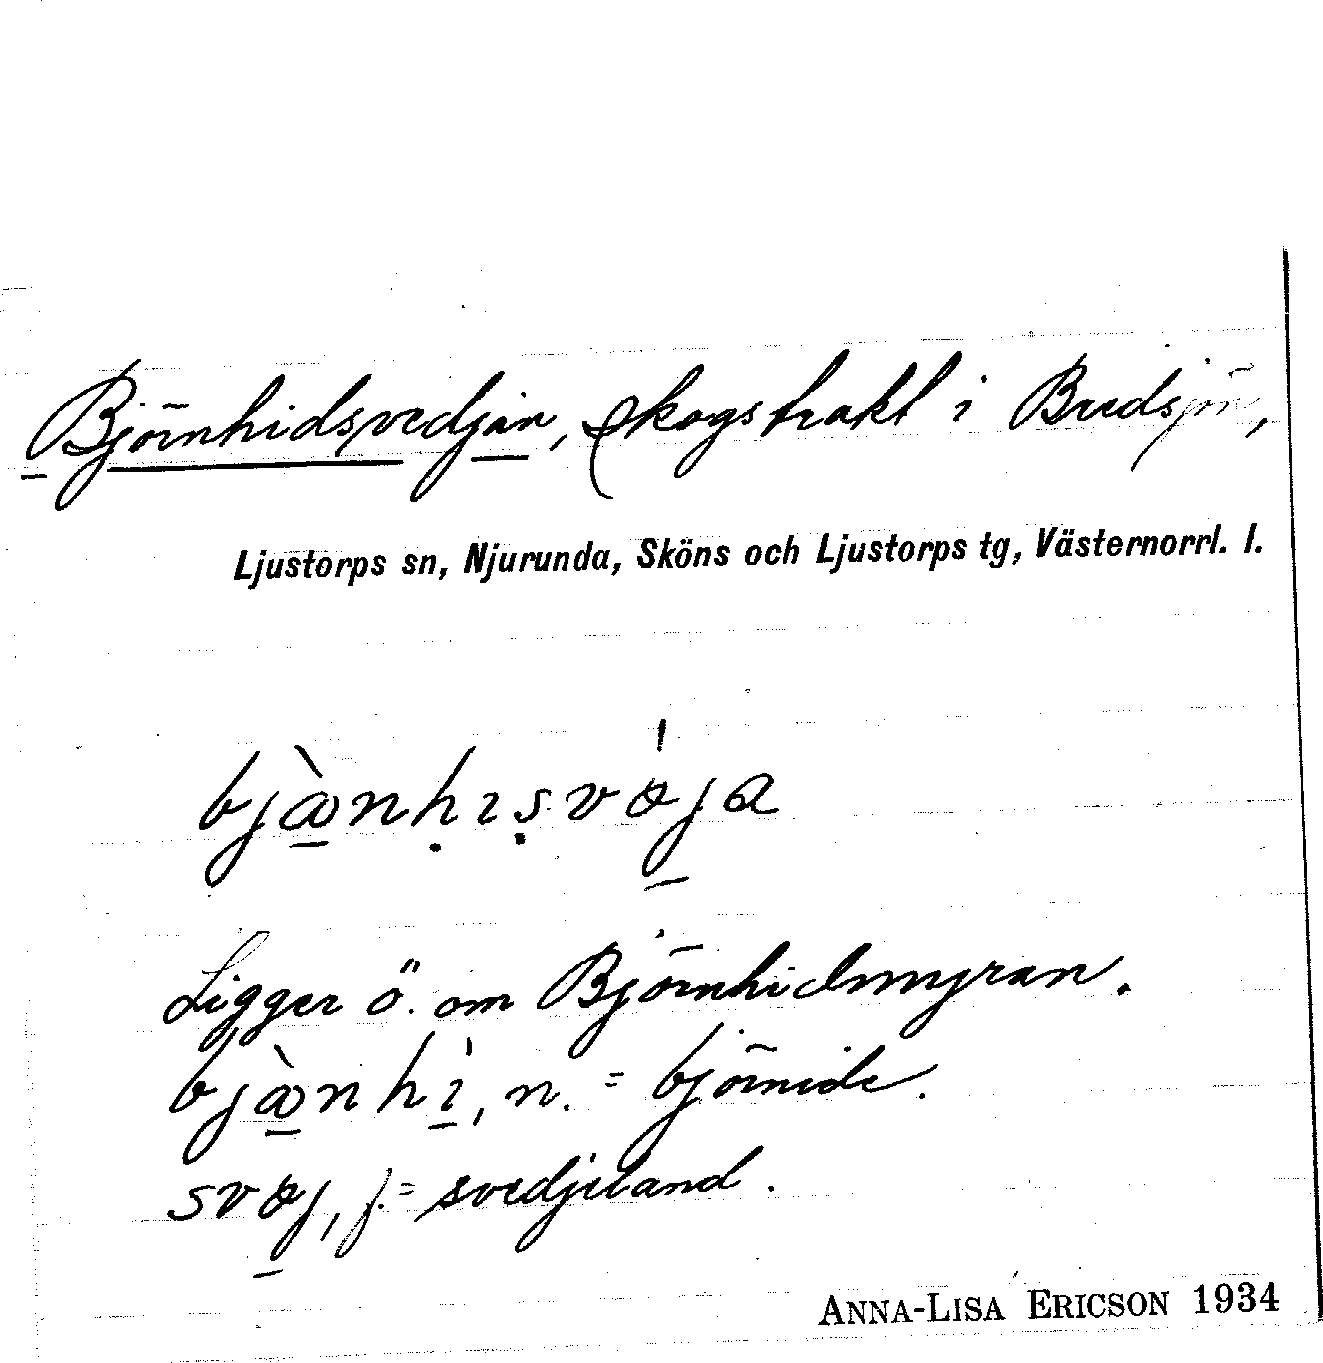 Björnhidsvedjan, skogstrakt i Bredsjön,
Ljustorps sn, Njurunda, Sköns och Ljustorps tg, Västernorrl. l.
bjæ̀nḥıṣvǿja
Ligger ö. om Björnhidmyran.
bjæ̀nhì, n. = björnide.
svøj, f. = svedjeland.
ANNA-LISA ERICSON 1934